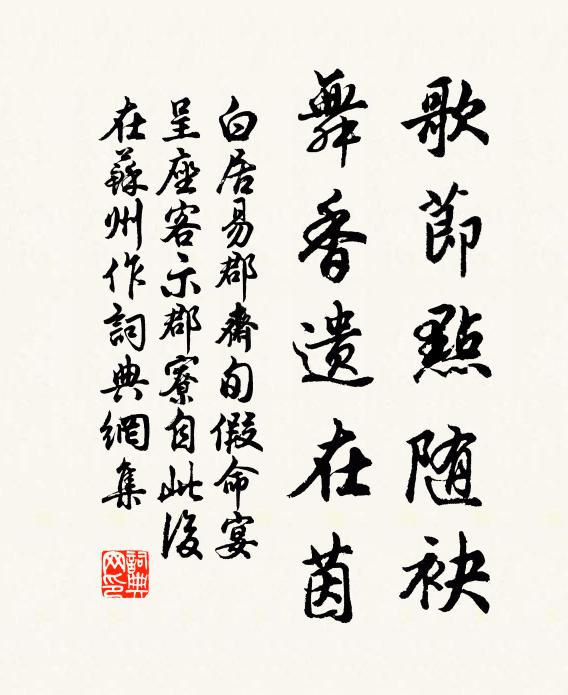 歌節點随袂
舞香遺在茵
白居易郡齋旬假命宴
呈座客示郡寮自此後
在蘇州作詞典網集
詞典网印